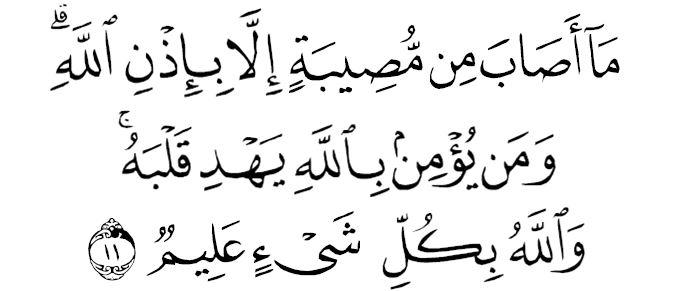 مَآ أَصَابَ مِن مُّصِيبَةٍ إِلَّا بِإِذْنِ ٱللَّهِ ۗ
وَمَن يُؤْمِنۢ بِٱللَّهِ يَهْدِ قَلْبَهُۥ ۚ
وَٱللَّهُ بِكُلِّ شَىْءٍ عَلِيمٌ ١١